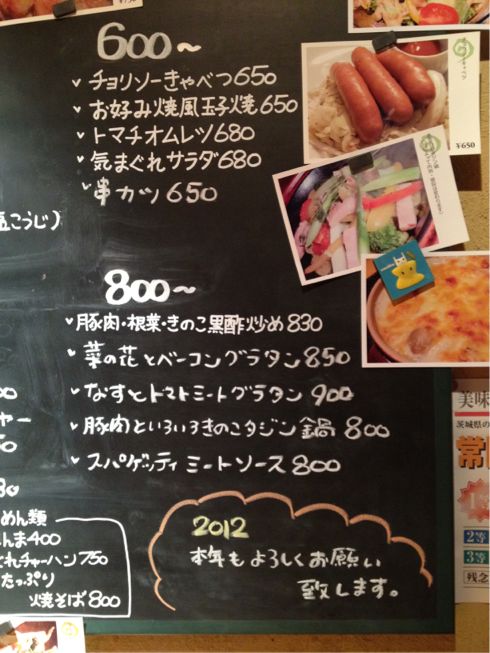 600～
チョリソーきゃべつ650
お好み焼風玉子焼650
トマチオムレツ680
気まぐれサラダ680
串カツ650
こうじ)
800～
豚肉・根菜・きのこ黒酢炒め830
菜の花とベーコングラタン850
なすとトマトミートグラタン900
豚肉といろいろきのこタジン鍋800
スパゲッティミートソース800
めん類
んま400
ぐれチャーハン750
たっぷり
焼そば800
2012
本年もよろしくお願い
致します。
¥650
美味
茨城県の
常
2等
3等
残念